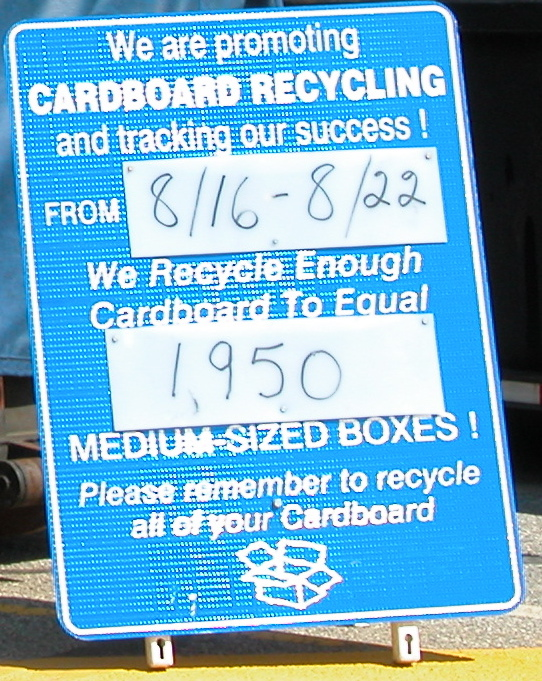 We are promoting
CARDBOARD RECYCLING
and tracking our success !
FROM 8/16 - 8/22
We Recycle Enough
Cardboard To Equal
1,950
MEDIUM-SIZED BOXES !
Please remember to recycle
all of your Cardboard